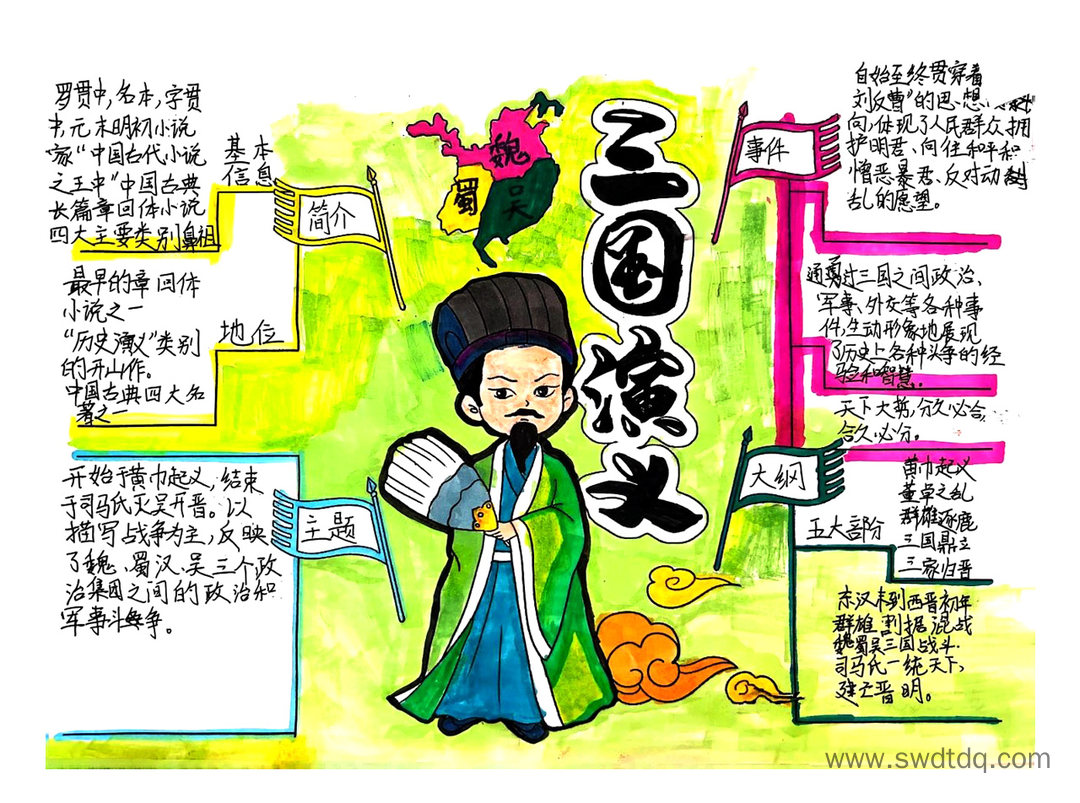 三国演义
魏
蜀
吴
简介
基本
信息
罗贯中,名本,字贯
中,元末明初小说
家"中国古代小说
之王中"中国古典
长篇章回体小说
四大主要类别鼻祖
地位
最早的章回体
小说之一
"历史演义"类别
的开山作。
中国古典四大名
著之一
主题
开始于黄巾起义,结束
于司马氏灭吴开晋。以
描写战争为主,反映
了魏、蜀汉、吴三个政
治集团之间的政治和
军事斗争。
事件
自始至终贯穿着
刘反曹"的思想
向,体现了人民群众拥
护明君、向往和平和
憎恶暴君、反对动
乱的愿望。
通过三国之间政治、
军事、外交等各种事
件,生动形象地展现
了历史上各种斗争的经
验和智慧.
天下大势,分久必合,
合久必分。
大纲
五大部分
黄巾起义
董卓之乱
群雄逐鹿
三国鼎立
三家归晋
东汉末到西晋初年
群雄割据混战
魏蜀吴三国战斗.
司马氏一统天下,
建立晋明。
www.swdtdq.com